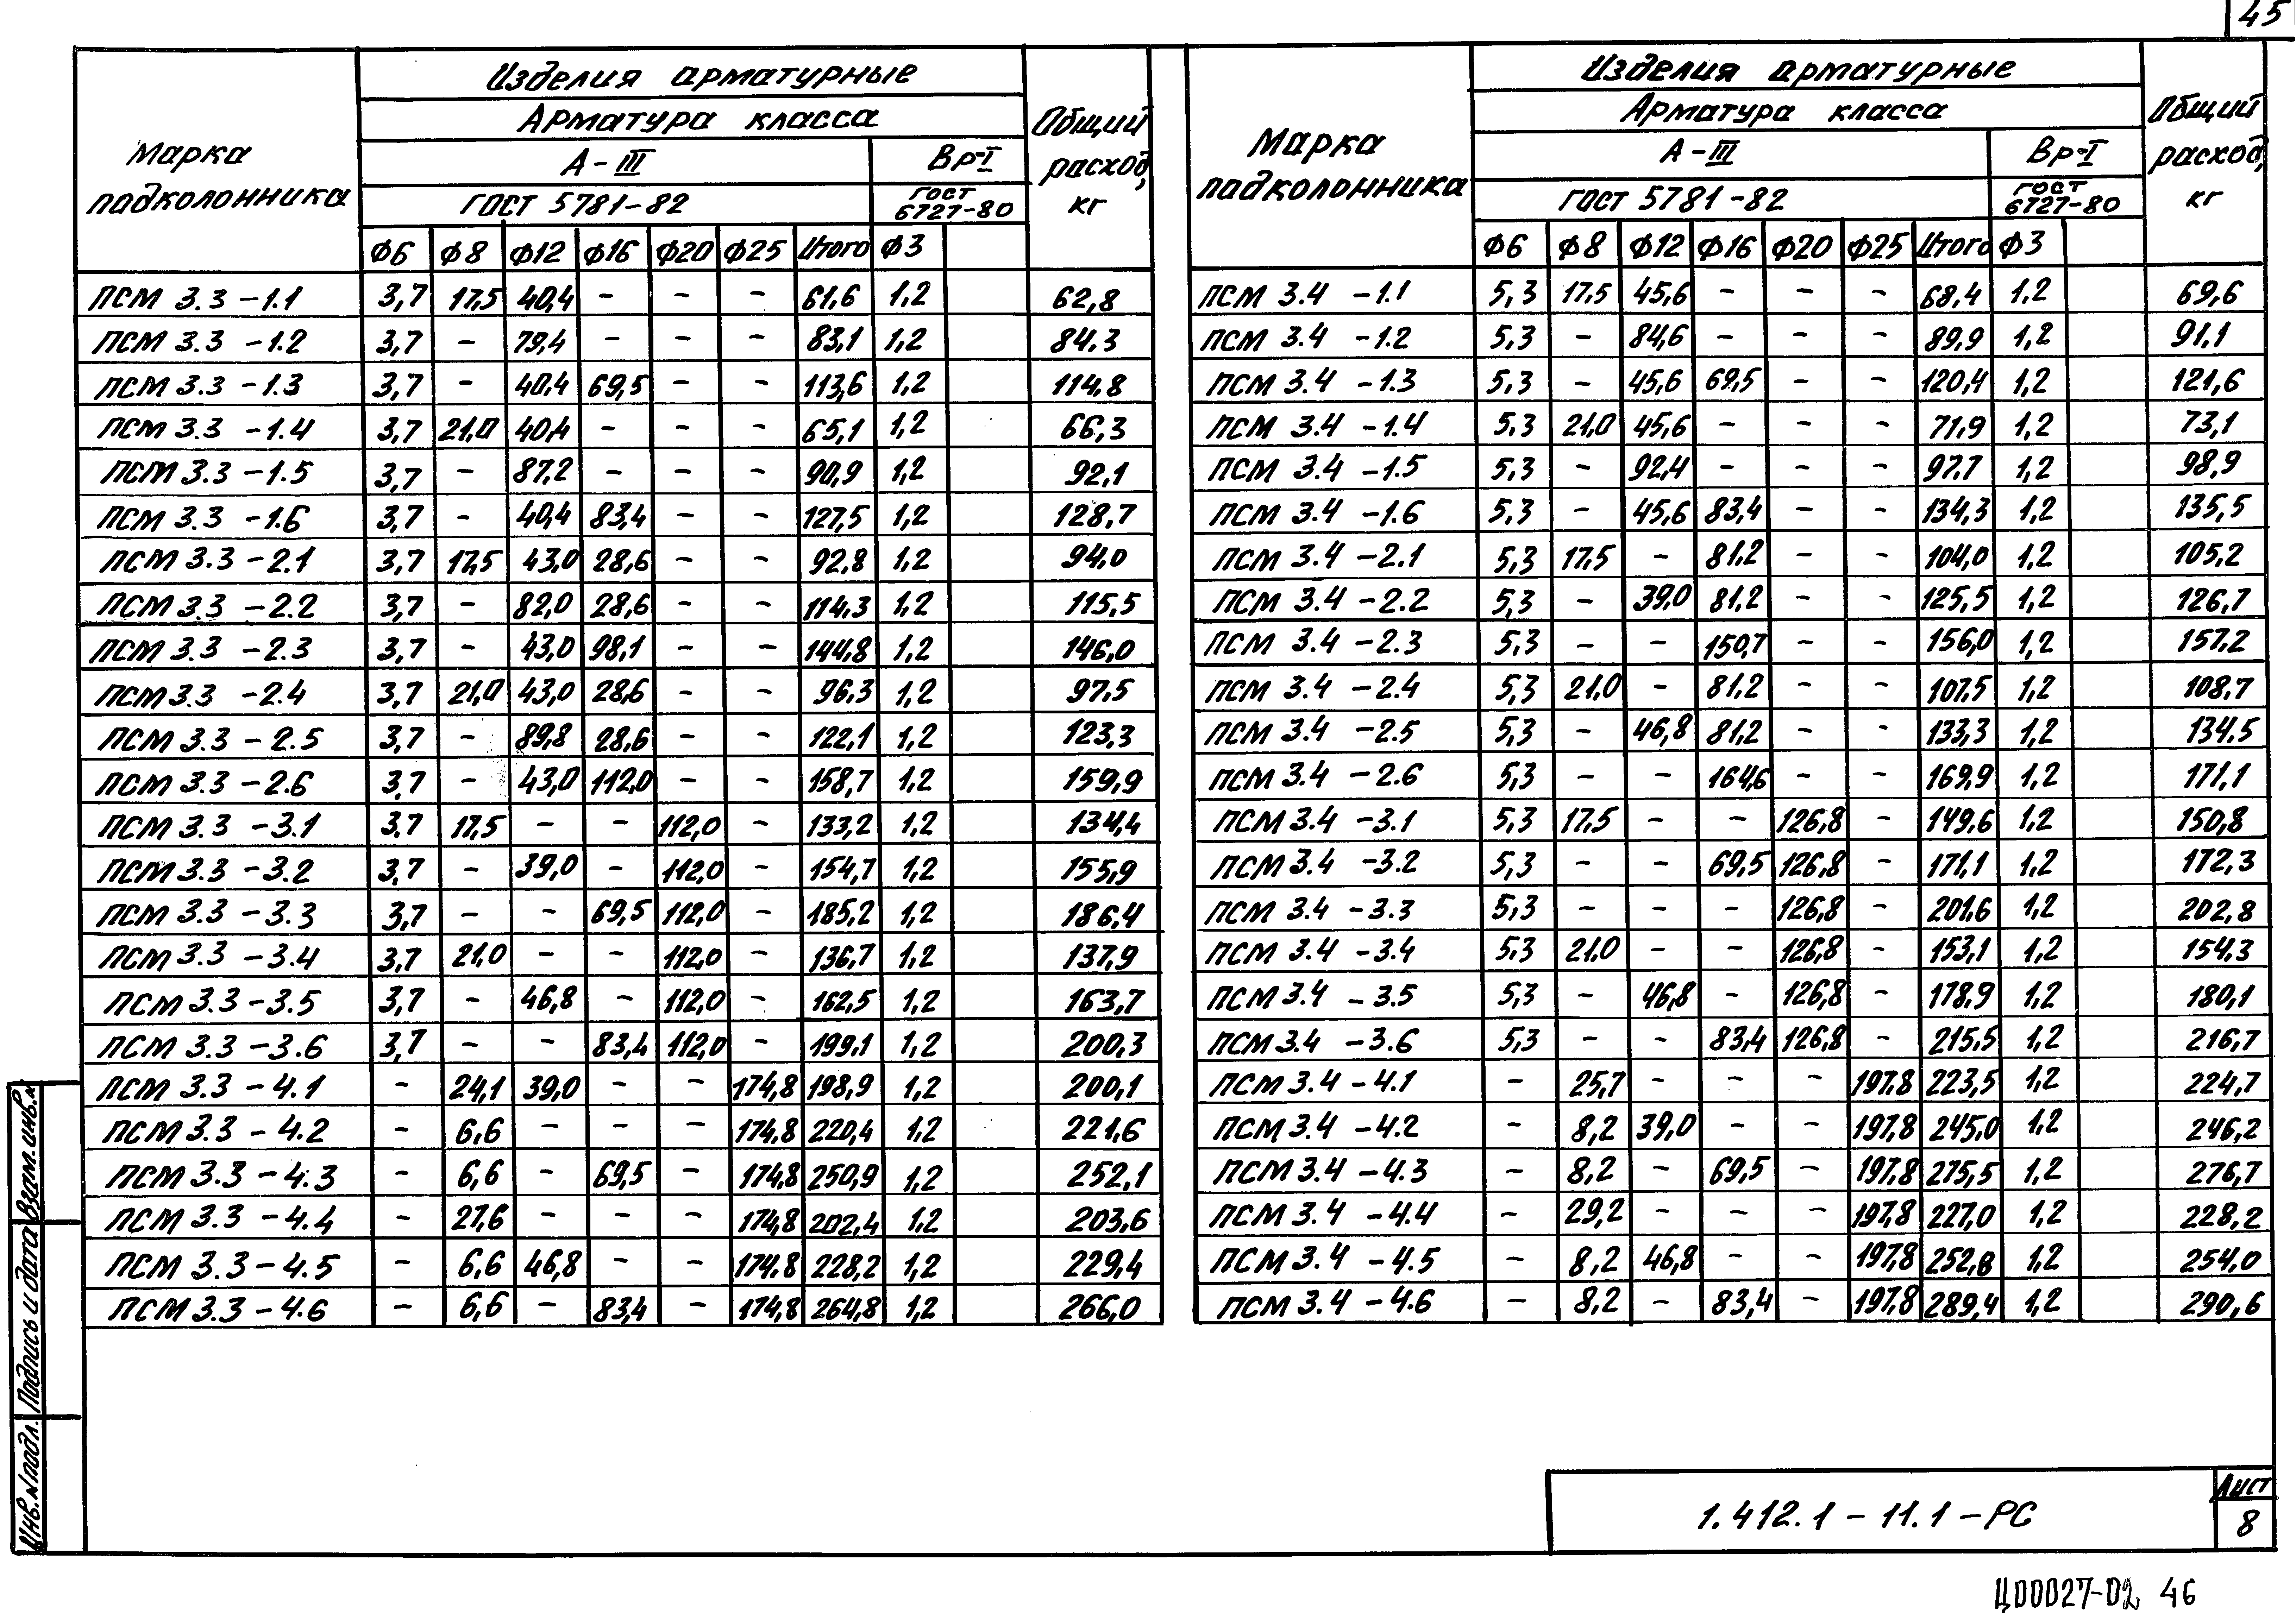 45
Марка подколонника
Изделия арматурные
Общий расход, кг
Арматура класса
А-III
Вр-I
ГОСТ 5781-82
ГОСТ 6727-80
Ф6 Ф8 Ф12 Ф16 Ф20 Ф25 Итого Ф3
ПСМ 3.3 -1.1 3,7 17,5 40,4 - - - 61,6 1,2 62,8
ПСМ 3.3 -1.2 3,7 - 79,4 - - - 83,1 1,2 84,3
ПСМ 3.3 -1.3 3,7 - 40,4 69,5 - - 113,6 1,2 114,8
ПСМ 3.3 -1.4 3,7 21,0 40,4 - - - 65,1 1,2 66,3
ПСМ 3.3 -1.5 3,7 - 87,2 - - - 90,9 1,2 92,1
ПСМ 3.3 -1.6 3,7 - 40,4 83,4 - - 127,5 1,2 128,7
ПСМ 3.3 -2.1 3,7 17,5 43,0 28,6 - - 92,8 1,2 94,0
ПСМ 3.3 -2.2 3,7 - 82,0 28,6 - - 114,3 1,2 115,5
ПСМ 3.3 -2.3 3,7 - 43,0 98,1 - - 144,8 1,2 146,0
ПСМ 3.3 -2.4 3,7 21,0 43,0 28,6 - - 96,3 1,2 97,5
ПСМ 3.3 -2.5 3,7 - 89,8 28,6 - - 122,1 1,2 123,3
ПСМ 3.3 -2.6 3,7 - 43,0 112,0 - - 158,7 1,2 159,9
ПСМ 3.3 -3.1 3,7 17,5 - - 112,0 - 133,2 1,2 134,4
ПСМ 3.3 -3.2 3,7 - 39,0 - 112,0 - 154,7 1,2 155,9
ПСМ 3.3 -3.3 3,7 - - 69,5 112,0 - 185,2 1,2 186,4
ПСМ 3.3 -3.4 3,7 21,0 - - 112,0 - 136,7 1,2 137,9
ПСМ 3.3 -3.5 3,7 - 46,8 - 112,0 - 162,5 1,2 163,7
ПСМ 3.3 -3.6 3,7 - - 83,4 112,0 - 199,1 1,2 200,3
ПСМ 3.3 -4.1 - 24,1 39,0 - - 174,8 198,9 1,2 200,1
ПСМ 3.3 -4.2 - 6,6 - - - 174,8 220,4 1,2 221,6
ПСМ 3.3 -4.3 - 6,6 - 69,5 - 174,8 250,9 1,2 252,1
ПСМ 3.3 -4.4 - 27,6 - - - 174,8 202,4 1,2 203,6
ПСМ 3.3 -4.5 - 6,6 46,8 - - 174,8 228,2 1,2 229,4
ПСМ 3.3 -4.6 - 6,6 - 83,4 - 174,8 264,8 1,2 266,0
Марка подколонника
Изделия арматурные
Общий расход, кг
Арматура класса
А-III
Вр-I
ГОСТ 5781-82
ГОСТ 6727-80
Ф6 Ф8 Ф12 Ф16 Ф20 Ф25 Итого Ф3
ПСМ 3.4 -1.1 5,3 17,5 45,6 - - - 68,4 1,2 69,6
ПСМ 3.4 -1.2 5,3 - 84,6 - - - 89,9 1,2 91,1
ПСМ 3.4 -1.3 5,3 - 45,6 69,5 - - 120,4 1,2 121,6
ПСМ 3.4 -1.4 5,3 21,0 45,6 - - - 71,9 1,2 73,1
ПСМ 3.4 -1.5 5,3 - 92,4 - - - 97,7 1,2 98,9
ПСМ 3.4 -1.6 5,3 - 45,6 83,4 - - 134,3 1,2 135,5
ПСМ 3.4 -2.1 5,3 17,5 - 81,2 - - 104,0 1,2 105,2
ПСМ 3.4 -2.2 5,3 - 39,0 81,2 - - 125,5 1,2 126,7
ПСМ 3.4 -2.3 5,3 - - 150,7 - - 156,0 1,2 157,2
ПСМ 3.4 -2.4 5,3 21,0 - 81,2 - - 107,5 1,2 108,7
ПСМ 3.4 -2.5 5,3 - 46,8 81,2 - - 133,3 1,2 134,5
ПСМ 3.4 -2.6 5,3 - - 164,6 - - 169,9 1,2 171,1
ПСМ 3.4 -3.1 5,3 17,5 - - 126,8 - 149,6 1,2 150,8
ПСМ 3.4 -3.2 5,3 - - 69,5 126,8 - 171,1 1,2 172,3
ПСМ 3.4 -3.3 5,3 - - - 126,8 - 201,6 1,2 202,8
ПСМ 3.4 -3.4 5,3 21,0 - - 126,8 - 153,1 1,2 154,3
ПСМ 3.4 -3.5 5,3 - 46,8 - 126,8 - 178,9 1,2 180,1
ПСМ 3.4 -3.6 5,3 - - 83,4 126,8 - 215,5 1,2 216,7
ПСМ 3.4 -4.1 - 25,7 - - - 197,8 223,5 1,2 224,7
ПСМ 3.4 -4.2 - 8,2 39,0 - - 197,8 245,0 1,2 246,2
ПСМ 3.4 -4.3 - 8,2 - 69,5 - 197,8 275,5 1,2 276,7
ПСМ 3.4 -4.4 - 29,2 - - - 197,8 227,0 1,2 228,2
ПСМ 3.4 -4.5 - 8,2 46,8 - - 197,8 252,8 1,2 254,0
ПСМ 3.4 -4.6 - 8,2 - 83,4 - 197,8 289,4 1,2 290,6
Инв. № подл. Подпись и дата Взам. инв. №
1.412.1-11.1-РС
Лист
8
Ц00027-02 46